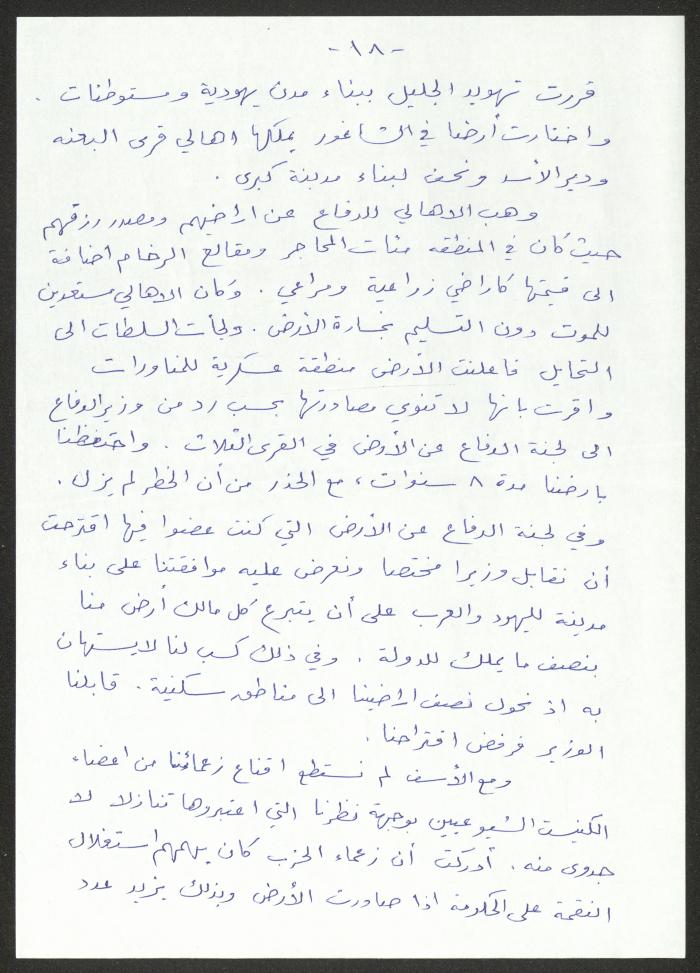 -١٨-
قررت تهويد الجليل ببناء مدن يهودية ومستوطنات .
واختارت أرضا في الشاغور يملكها اهالي قرى البعنه
وديرالأسد ونحف لبناء مدينة كبرى .
وهب الاهالي للدفاع عن اراضيهم ومصدر رزقهم
حيث كان في المنطقه مئات المحاجر ومقالع الرخام اضافة
الى قيمتها كاراضي زراعية ومراعي . وكان الاهالي مستعدين
للموت دون التسليم بخسارة الأرض . ولجأت السلطات الى
التحايل فاعلنت الأرض منطقة عسكرية للمناورات
واقرت بانها لا تنوي مصادرتها بحسب رد من وزير الدفاع
الى لجنة الدفاع عن الأرض في القرى الثلاث . واحتفظنا
بارضنا مدة ٨ سنوات ، مع الحذر من أن الخطر لم يزل .
وفي لجنة الدفاع عن الأرض التي كنت عضوا فيها اقترحت
أن نقابل وزيرا مختصا ونعرض عليه موافقتنا على بناء
مدينة لليهود والعرب على أن يتبرع كل مالك أرض منا
بنصف ما يملك للدولة . وفي ذلك كسب لنا لا يستهان
به اذ نحول نصف اراضينا الى مناطق سكنية . قابلنا
الوزير فرفض اقتراحنا .
ومع الأسف لم نستطع اقناع زعمائنا من اعضاء
الكنيست الشيوعيين بوجهة نظرنا التي اعتبروها تنازلا لا
جدوى منه . أدركت أن زعماء الحزب كان يهمهم استغلال
النقمة على الحكومة اذا صادرت الأرض وبذلك يزيد عدد